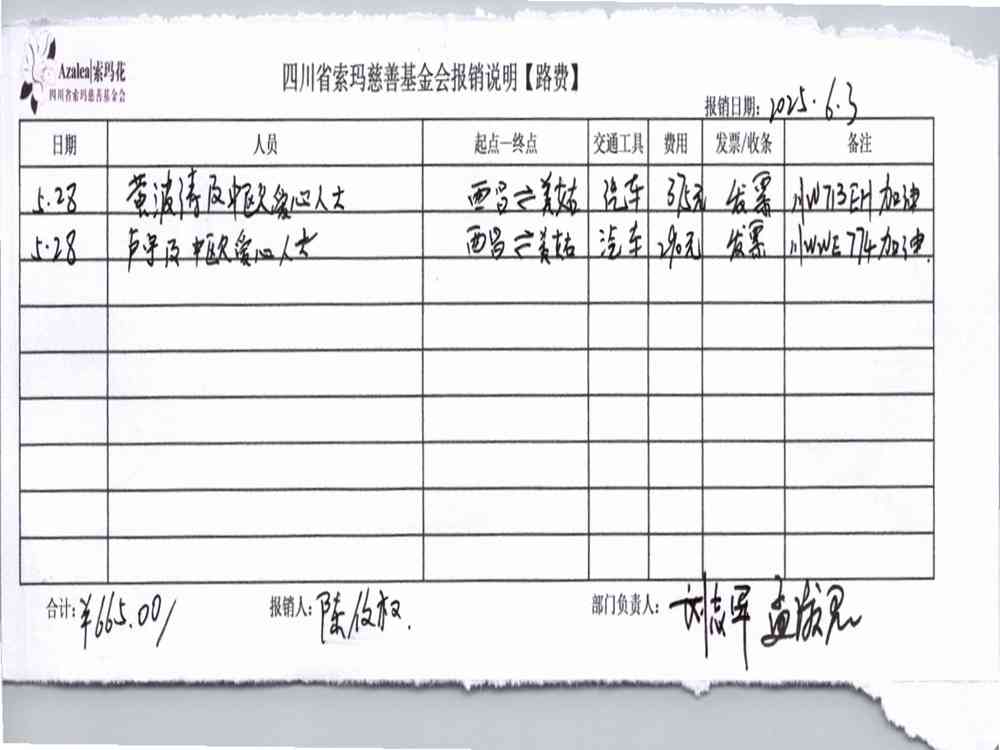 Azalea|索玛花
四川省索玛慈善基金会
四川省索玛慈善基金会报销说明【路费】
报销日期: 2025.6.3
日期 人员 起点—终点 交通工具 费用 发票/收条 备注
5.28 黄波涛及中欧爱心人士 西昌⇌美姑 汽车 375元 发票 川W713EH加油
5.28 卢宇及中欧爱心人士 西昌⇌美姑 汽车 290元 发票 川WWE774加油.
合计: ¥665.00/ 报销人: 陈 权. 部门负责人: 刘志军 孟